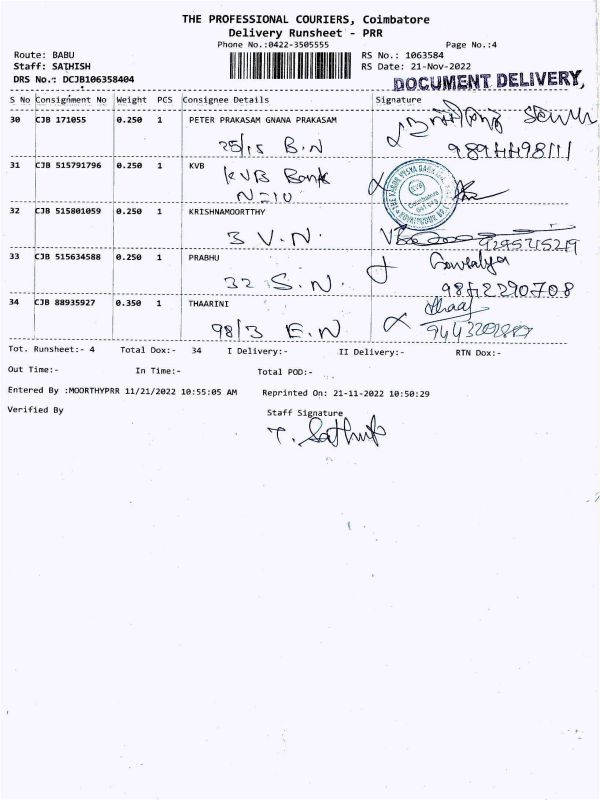 THE PROFESSIONAL COURIERS, Coimbatore
Delivery Runsheet - PRR
Phone No.:0422-3505555 Page No.:4
Route: BABU RS No.: 1063584
Staff: SATHISH RS Date: 21-Nov-2022
DRS No.: DCJB106358404 DOCUMENT DELIVERY,
S No Consignment No Weight PCS Consignee Details Signature
30 CJB 171055 0.250 1 PETER PRAKASAM GNANA PRAKASAM
25/15 B.N
31 CJB 515791796 0.250 1 KVB
KVB Bank
N=10
32 CJB 515801059 0.250 1 KRISHNAMOORTTHY
3 V.N.
33 CJB 515634588 0.250 1 PRABHU Gowsalya
32 S.N. 9842290708
34 CJB 88935927 0.350 1 THAARINI
98/3 E.N
Tot. Runsheet:- 4 Total Dox:- 34 I Delivery:- II Delivery:- RTN Dox:-
Out Time:- In Time:- Total POD:-
Entered By :MOORTHYPRR 11/21/2022 10:55:05 AM Reprinted On: 21-11-2022 10:50:29
Verified By Staff Signature
T. Sathish